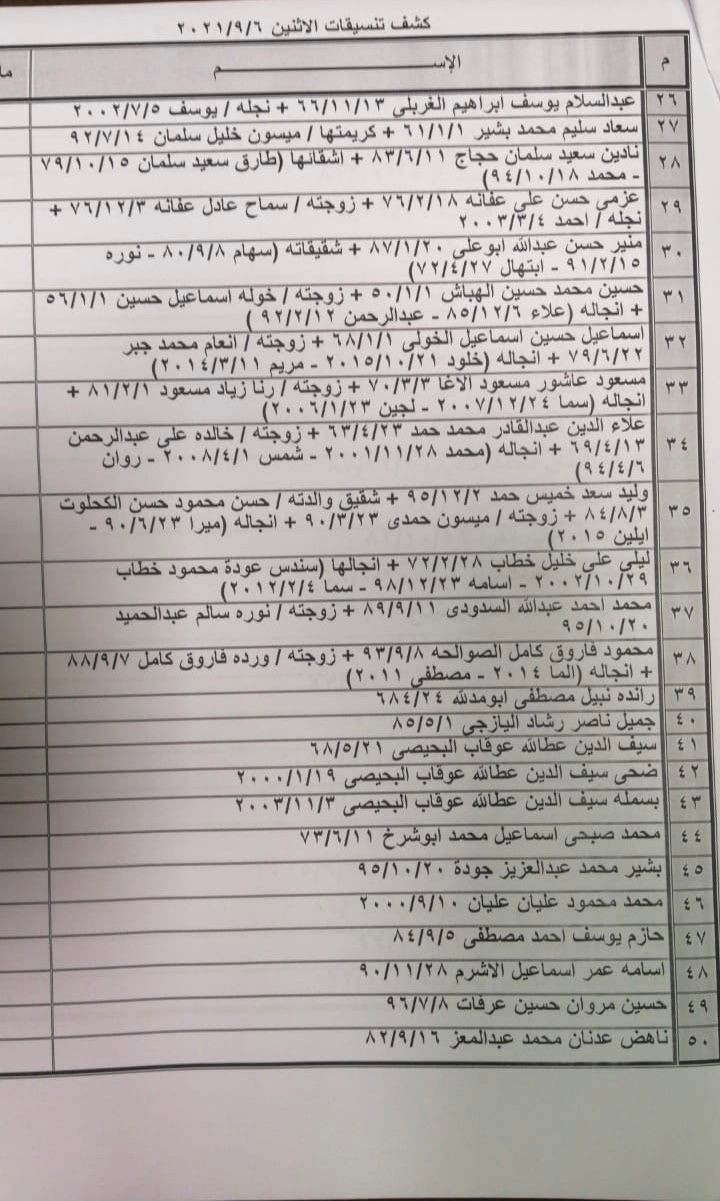 كشف تنسيقات الاثنين ٢٠٢١/٩/٦
م الإســـــــــم ما
٢٦ عبدالسلام يوسف ابراهيم الغربلى ٦٦/١١/١٣ + نجله / يوسف ٢٠٠٢/٧/٥
٢٧ سعاد سليم محمد بشير ٦١/١/١ + كريمتها / ميسون خليل سلمان ٩٢/٧/١٤
٢٨ نادين سعيد سلمان حجاج ٨٣/٦/١١ + اشقائها (طارق سعيد سلمان ٧٩/١٠/١٥
- محمد ٩٤/١٠/١٨)
٢٩ عزمى حسن على عفانه ٧٦/٢/١٨ + زوجته / سماح عادل عفانه ٧٦/١٢/٣ +
نجله / احمد ٢٠٠٣/٣/٤
٣٠ منير حسن عبدالله ابوعلى ٨٧/١/٢٠ + شقيقاته (سهام ٨٠/٩/٨ - نوره
٩١/٢/١٥ - ابتهال ٧٢/٤/٢٧)
٣١ حسين محمد حسين الهباش ٥٠/١/١ + زوجته / خوله اسماعيل حسين ٥٦/١/١
+ انجاله (علاء ٨٥/١٢/٦ - عبدالرحمن ٩٢/٢/١٢ )
٣٢ اسماعيل حسين اسماعيل الخولى ٦٨/١/١ + زوجته / انعام محمد جبر
٧٩/٦/٢٢ + انجاله (خلود ٢٠١٥/١٠/٢١ - مريم ٢٠١٤/٣/١١)
٣٣ مسعود عاشور مسعود الاغا ٧٠/٣/٣ + زوجته / رنا زياد مسعود ٨١/٢/١ +
انجاله (سما ٢٠٠٧/١٢/٢٤ - لجين ٢٠٠٦/١/٢٣)
٣٤ علاء الدين عبدالقادر محمد حمد ٦٣/٤/٢٣ + زوجته / خالده على عبدالرحمن
٦٩/٤/١٣ + انجاله (محمد ٢٠٠١/١١/٢٨ - شمس ٢٠٠٨/٤/١ - روان
٩٤/٤/٦)
٣٥ وليد سعد خميس حمد ٩٥/١٢/٢ + شقيق والدته / حسن محمود حسن الكحلوت
٨٤/٨/٣ + زوجته / ميسون حمدى ٩٠/٣/٢٣ + انجاله (ميرا ٩٠/٦/٢٣ -
ايلين ٢٠١٥)
٣٦ ليلى على خليل خطاب ٧٢/٢/٢٨ + انجالها (سندس عودة محمود خطاب
٢٠٠٢/١٠/٢٩ - اسامه ٩٨/١٢/٢٣ - سما ٢٠١٢/٢/٤)
٣٧ محمد احمد عبدالله السدودى ٨٩/٩/١١ + زوجته / نوره سالم عبدالحميد
٩٥/١٠/٢٠
٣٨ محمود فاروق كامل الصوالحه ٩٣/٩/٨ + زوجته / ورده فاروق كامل ٨٨/٩/٧
+ انجاله (الما ٢٠١٤ - مصطفى ٢٠١١)
٣٩ رانده نبيل مصطفى ابومدلله ٦٨٤/٢٤
٤٠ جميل ناصر رشاد اليازجى ٨٥/٥/١
٤١ سيف الدين عطالله عوقاب البحيصى ٦٨/٥/٢١
٤٢ ضحى سيف الدين عطالله عوقاب البحيصى ٢٠٠٠/١/١٩
٤٣ بسمله سيف الدين عطالله عوقاب البحيصى ٢٠٠٣/١١/٣
٤٤ محمد صبحى اسماعيل محمد ابوشرخ ٧٣/٦/١١
٤٥ بشير محمد عبدالعزيز جودة ٩٥/١٠/٢٠
٤٦ محمد محمود عليان عليان ٢٠٠٠/٩/١٠
٤٧ حازم يوسف احمد مصطفى ٨٤/٩/٥
٤٨ اسامه عمر اسماعيل الاشرم ٩٠/١١/٢٨
٤٩ حسين مروان حسين عرفات ٩٦/٧/٨
٥٠ ناهض عدنان محمد عبدالمعز ٨٢/٩/١٦